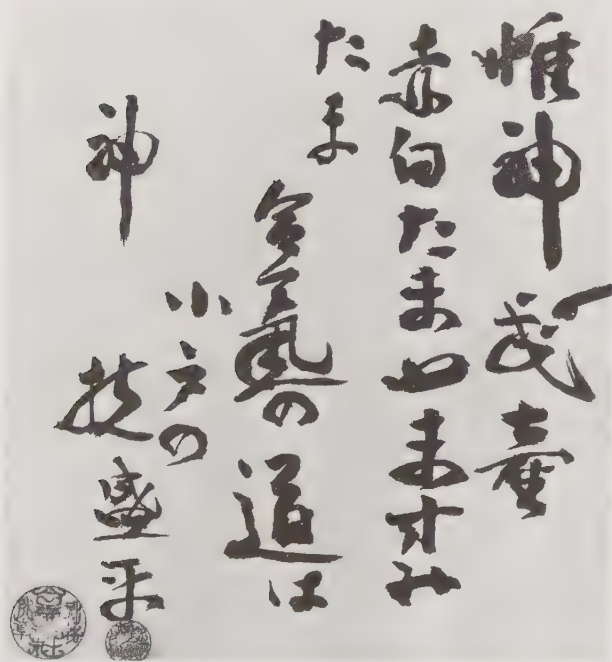 惟神武産
赤白たまやますみ
たま
合氣の道は
小戸の
神技盛平